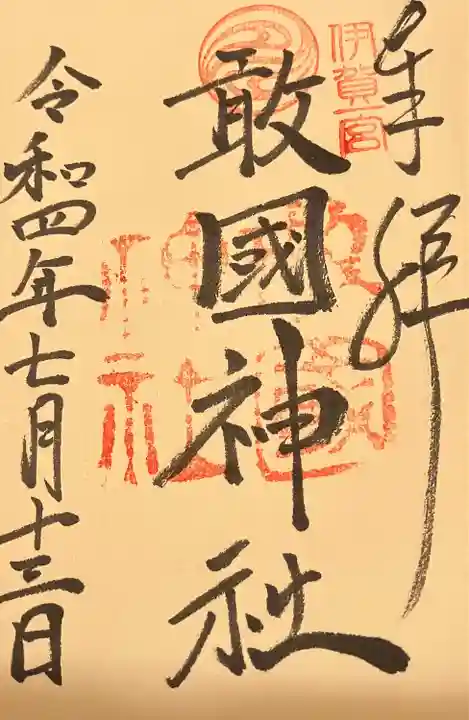 奉拝
伊賀一宮
敢國神社
敢國神社
令和四年七月十三日